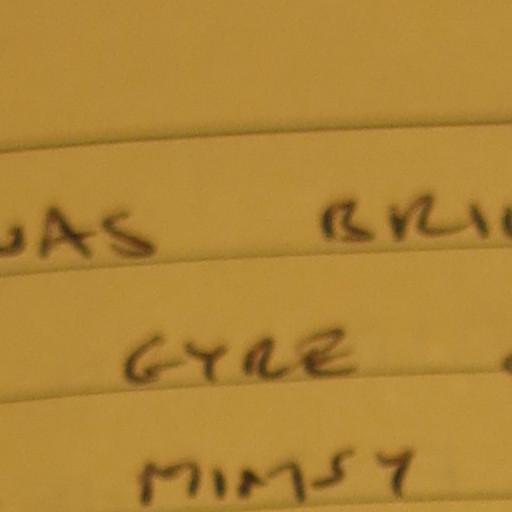 WAS BRI
GYRE
MIMSY